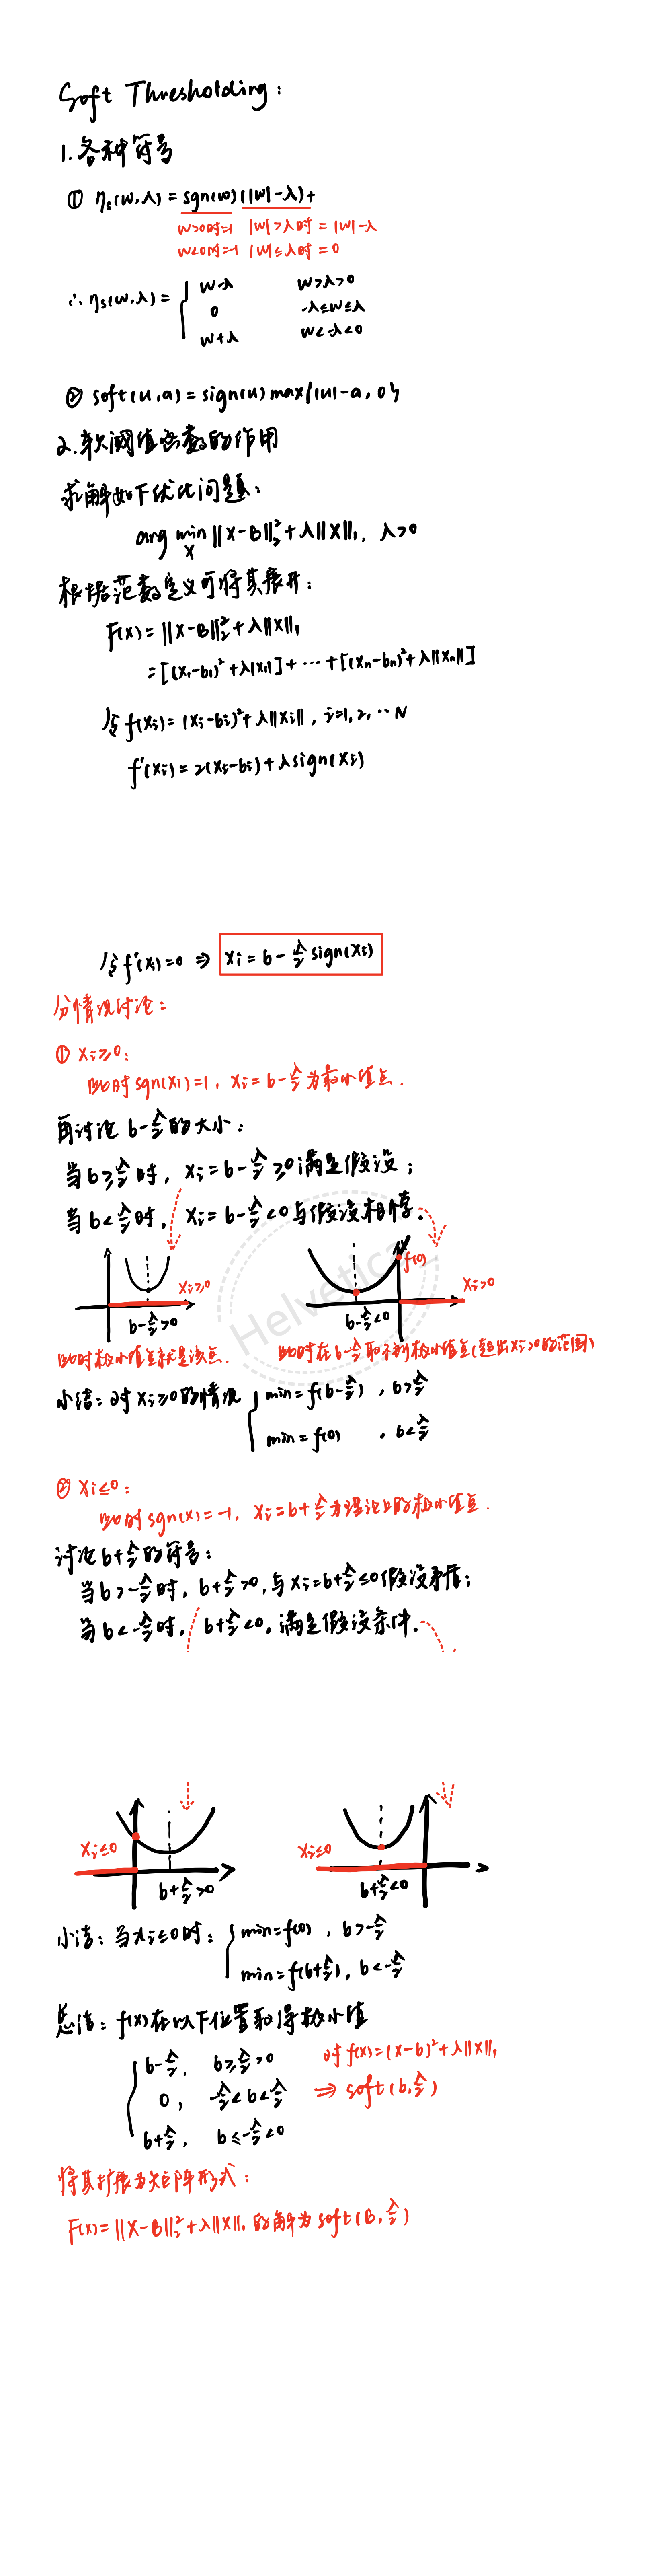 Soft Thresholding:
1.各种符号
① ηs(w,λ)=sgn(w)(|w|-λ)+
w>0时=1 |w|>λ时=|w|-λ
w<0时=-1 |w|≤λ时=0
∴ηs(w,λ)={ w-λ w>λ>0
0 -λ≤w≤λ
w+λ w<-λ<0
② soft(u,a)=sign(u)max{|u|-a,0}
2.软阈值函数的作用
求解如下优化问题:
arg min_X ||X-B||₂²+λ||X||₁, λ>0
根据范数定义可将其展开:
F(x)=||X-B||₂²+λ||X||₁
=[(x₁-b₁)²+λ|x₁|]+…+[(xn-bn)²+λ||xn||]
令f(xi)=(xi-bi)²+λ||xi||, i=1,2,…N
f'(xi)=2(xi-bi)+λsign(xi)
令f'(xi)=0 ⇒ xi=b-λ/2 sign(xi)
分情况讨论:
① xi≥0:
此时sgn(xi)=1, xi=b-λ/2为最小值点.
再讨论b-λ/2的大小:
当b≥λ/2时, xi=b-λ/2≥0满足假设;
当b<λ/2时, xi=b-λ/2<0与假设相悖.
Helvetica
f(0)
xi≥0 xi>0
b-λ/2>0 b-λ/2<0
此时极小值点就是该点. 此时在b-λ/2取不到极小值点(超出xi>0的范围)
小结:对xi≥0的情况{ min=f(b-λ/2) , b>λ/2
min=f(0) , b<λ/2
② xi≤0:
此时sgn(x)=-1, xi=b+λ/2为理论上的极小值点.
讨论b+λ/2的符号:
当b>-λ/2时, b+λ/2>0,与xi=b+λ/2≤0假设矛盾;
当b<-λ/2时, b+λ/2<0,满足假设条件.
xi≤0 xi≤0
b+λ/2>0 b+λ/2<0
小结:当xi≤0时:{ min=f(0) , b>-λ/2
min=f(b+λ/2), b<-λ/2
总结:f(x)在以下位置取得极小值
{ b-λ/2, b≥λ/2>0 对f(x)=(x-b)²+λ||x||₁
0, -λ/2<b<λ/2 ⇒ soft(b,λ/2)
b+λ/2, b≤-λ/2<0
将其扩展为矩阵形式:
F(x)=||X-B||₂²+λ||X||₁的解为soft(B,λ/2)